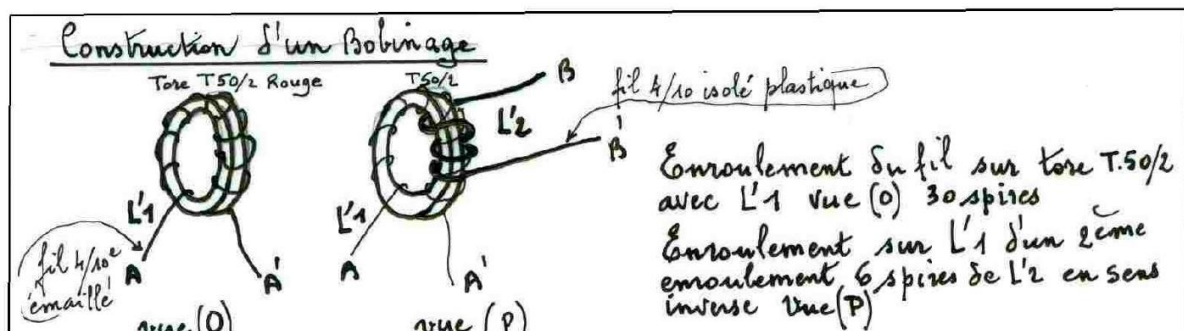 Construction d'un Bobinage
Tore T50/2 Rouge
T50/2
B
fil 4/10 isolé plastique
L'2
B'
L'1
L'1
fil 4/10e
émaillé
A
A'
A
A'
vue (O)
vue (P)
Enroulement du fil sur tore T.50/2
avec L'1 vue (O) 30 spires
Enroulement sur L'1 d'un 2ème
enroulement 6 spires de L'2 en sens
inverse vue (P)